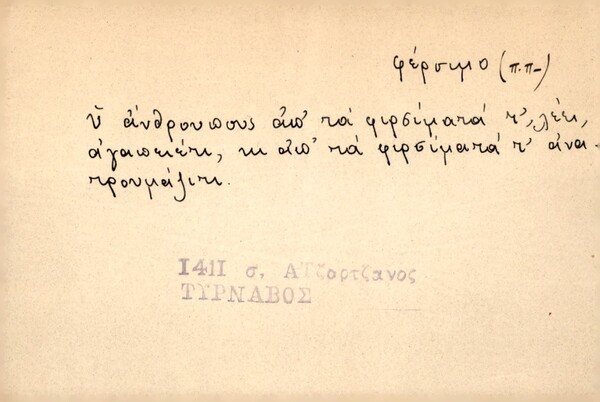 φέρσιμο (π.π-)
ὓ ἄνθρουπους ἀπ' τά φιρσίματά τ', λέει,
ἀγαπειέτι, κι ἀπ' τά φιρσίματά τ' ἀνα-
τρουμάζιτι.
1411 σ, ΑΤζαρτζανος
ΤΥΡΝΑΒΟΣ